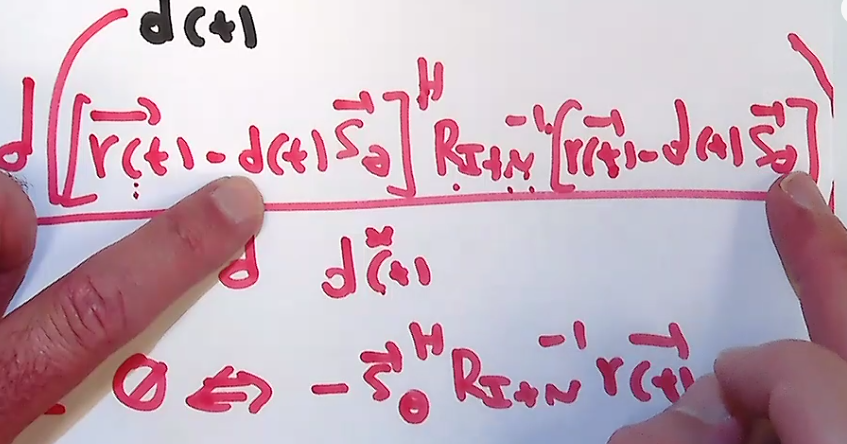 d(t)
d ([r⃗(t) - d(t) S⃗₀]ᴴ R_{I+N}⁻¹ [r⃗(t) - d(t) S⃗₀])
d d*(t)
0 ⇔ - S⃗₀ᴴ R_{I+N}⁻¹ r⃗(t)